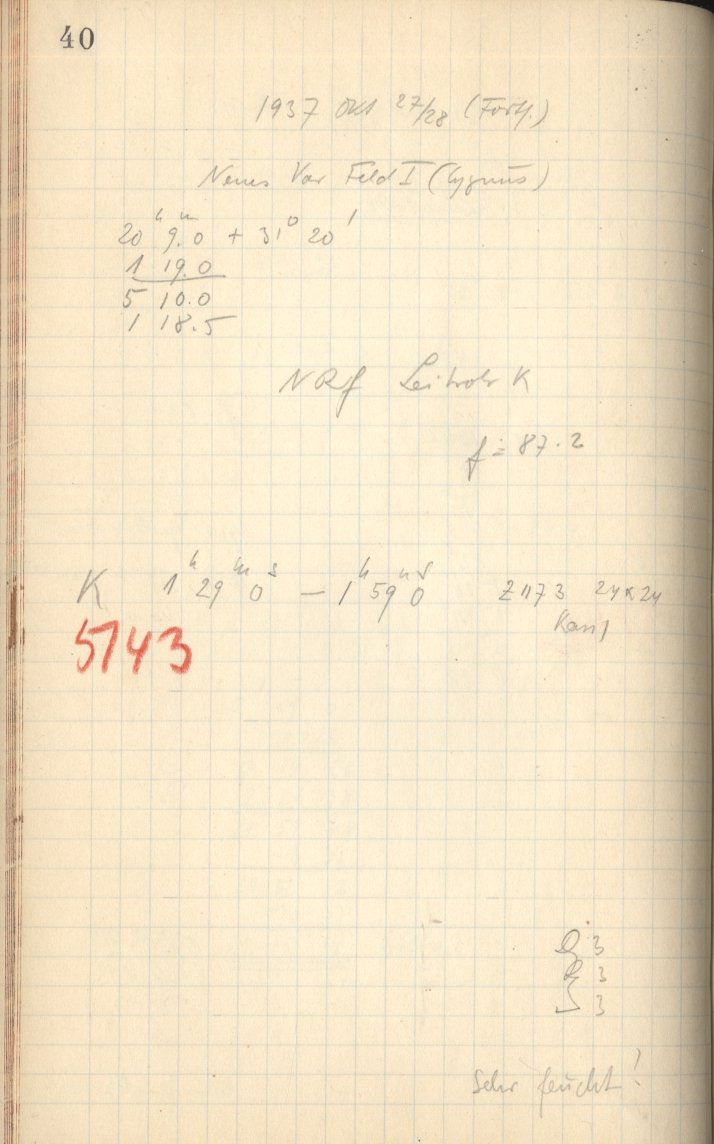 40
1937 Okt 27/28 (Forts.)
Neues Var Feld I (Cygnus)
20ʰ 9ᵐ.0 + 31° 20'
1 19.0
5 10.0
1 18.5
f = 87.2
K 1ʰ 29ᵐ 0ˢ — 1ʰ 59ᵐ 0ˢ Z 1173 24 x 24
5143
3
3
3
Sehr feucht!